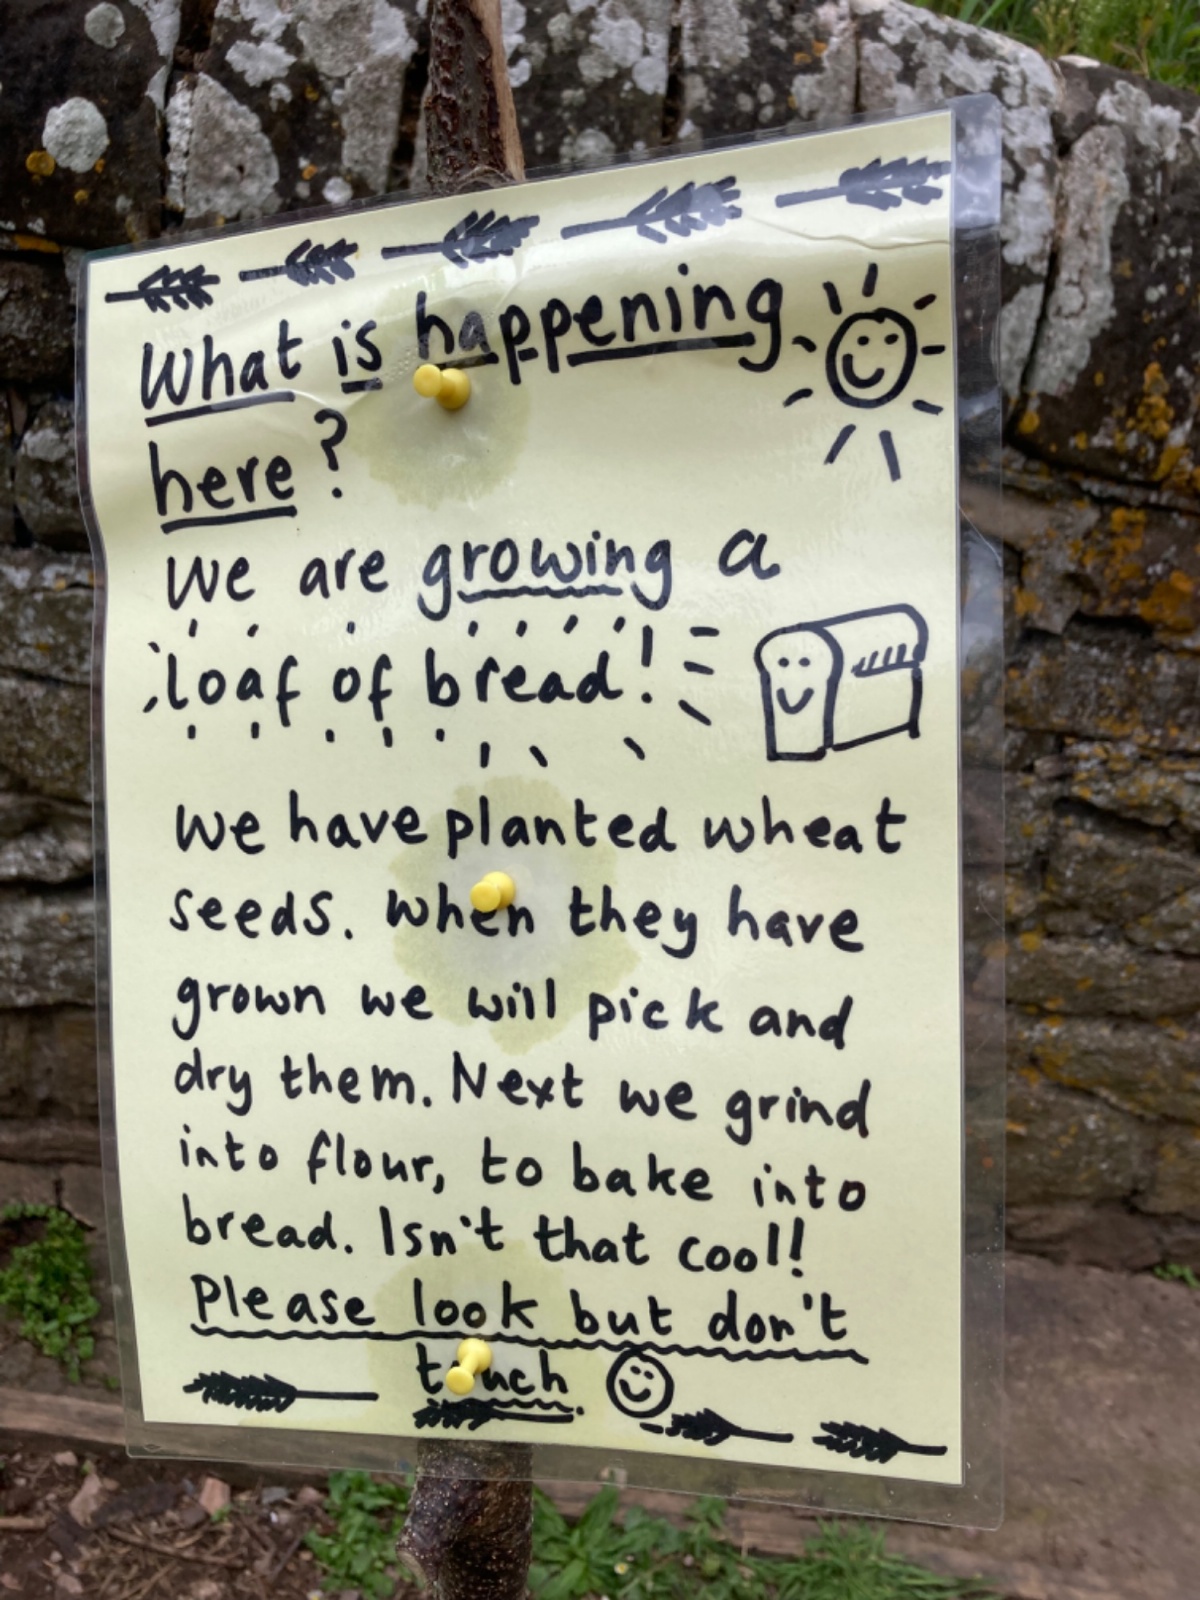 What is happening
here?
We are growing a
loaf of bread!
We have planted wheat
seeds. When they have
grown we will pick and
dry them. Next we grind
into flour, to bake into
bread. Isn't that cool!
Please look but don't
touch.